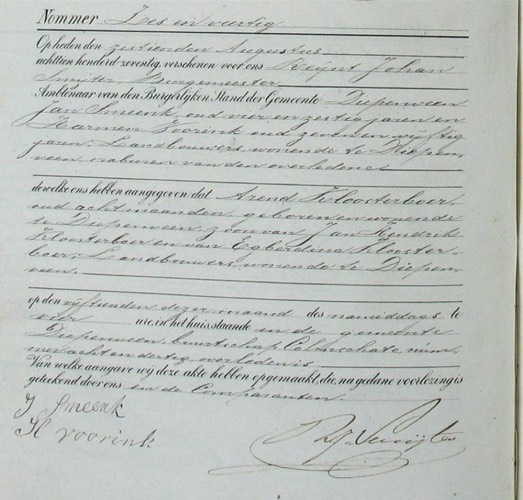 Nommer Zes en veertig
Op heden den zestienden Augustus
achttien honderd zeventig, verschenen voor ons Reijnt Johan
Suijter Burgemeester
Ambtenaar van den Burgerlijken Stand der Gemeente Diepenveen
Jan Smeenk, oud vier en zestig jaren en
Harmen Voorink oud zeven en vijftig
jaren, Landbouwers, wonende te Diepen
veen naburen van den overledene
dewelke ons hebben aangegeven dat Arend Kloosterboer
oud acht maanden, geboren en wonende
te Diepenveen, zoon van Jan Hendrik
Kloosterboer en van Egberdina Klooster-
boer, Landbouwers, wonende te Diepen
veen.
op den vijftienden dezer maand des namiddags te
vier ure, in het huis, staande in de gemeente
Diepenveen, buurtschap Colmschate, num-
mer acht en dertig, overleden is
Van welke aangave wij deze akte hebben opgemaakt, die, na gedane voorlezing is
geteekend door ons en de Comparanten.
J Smeenk
H voorink